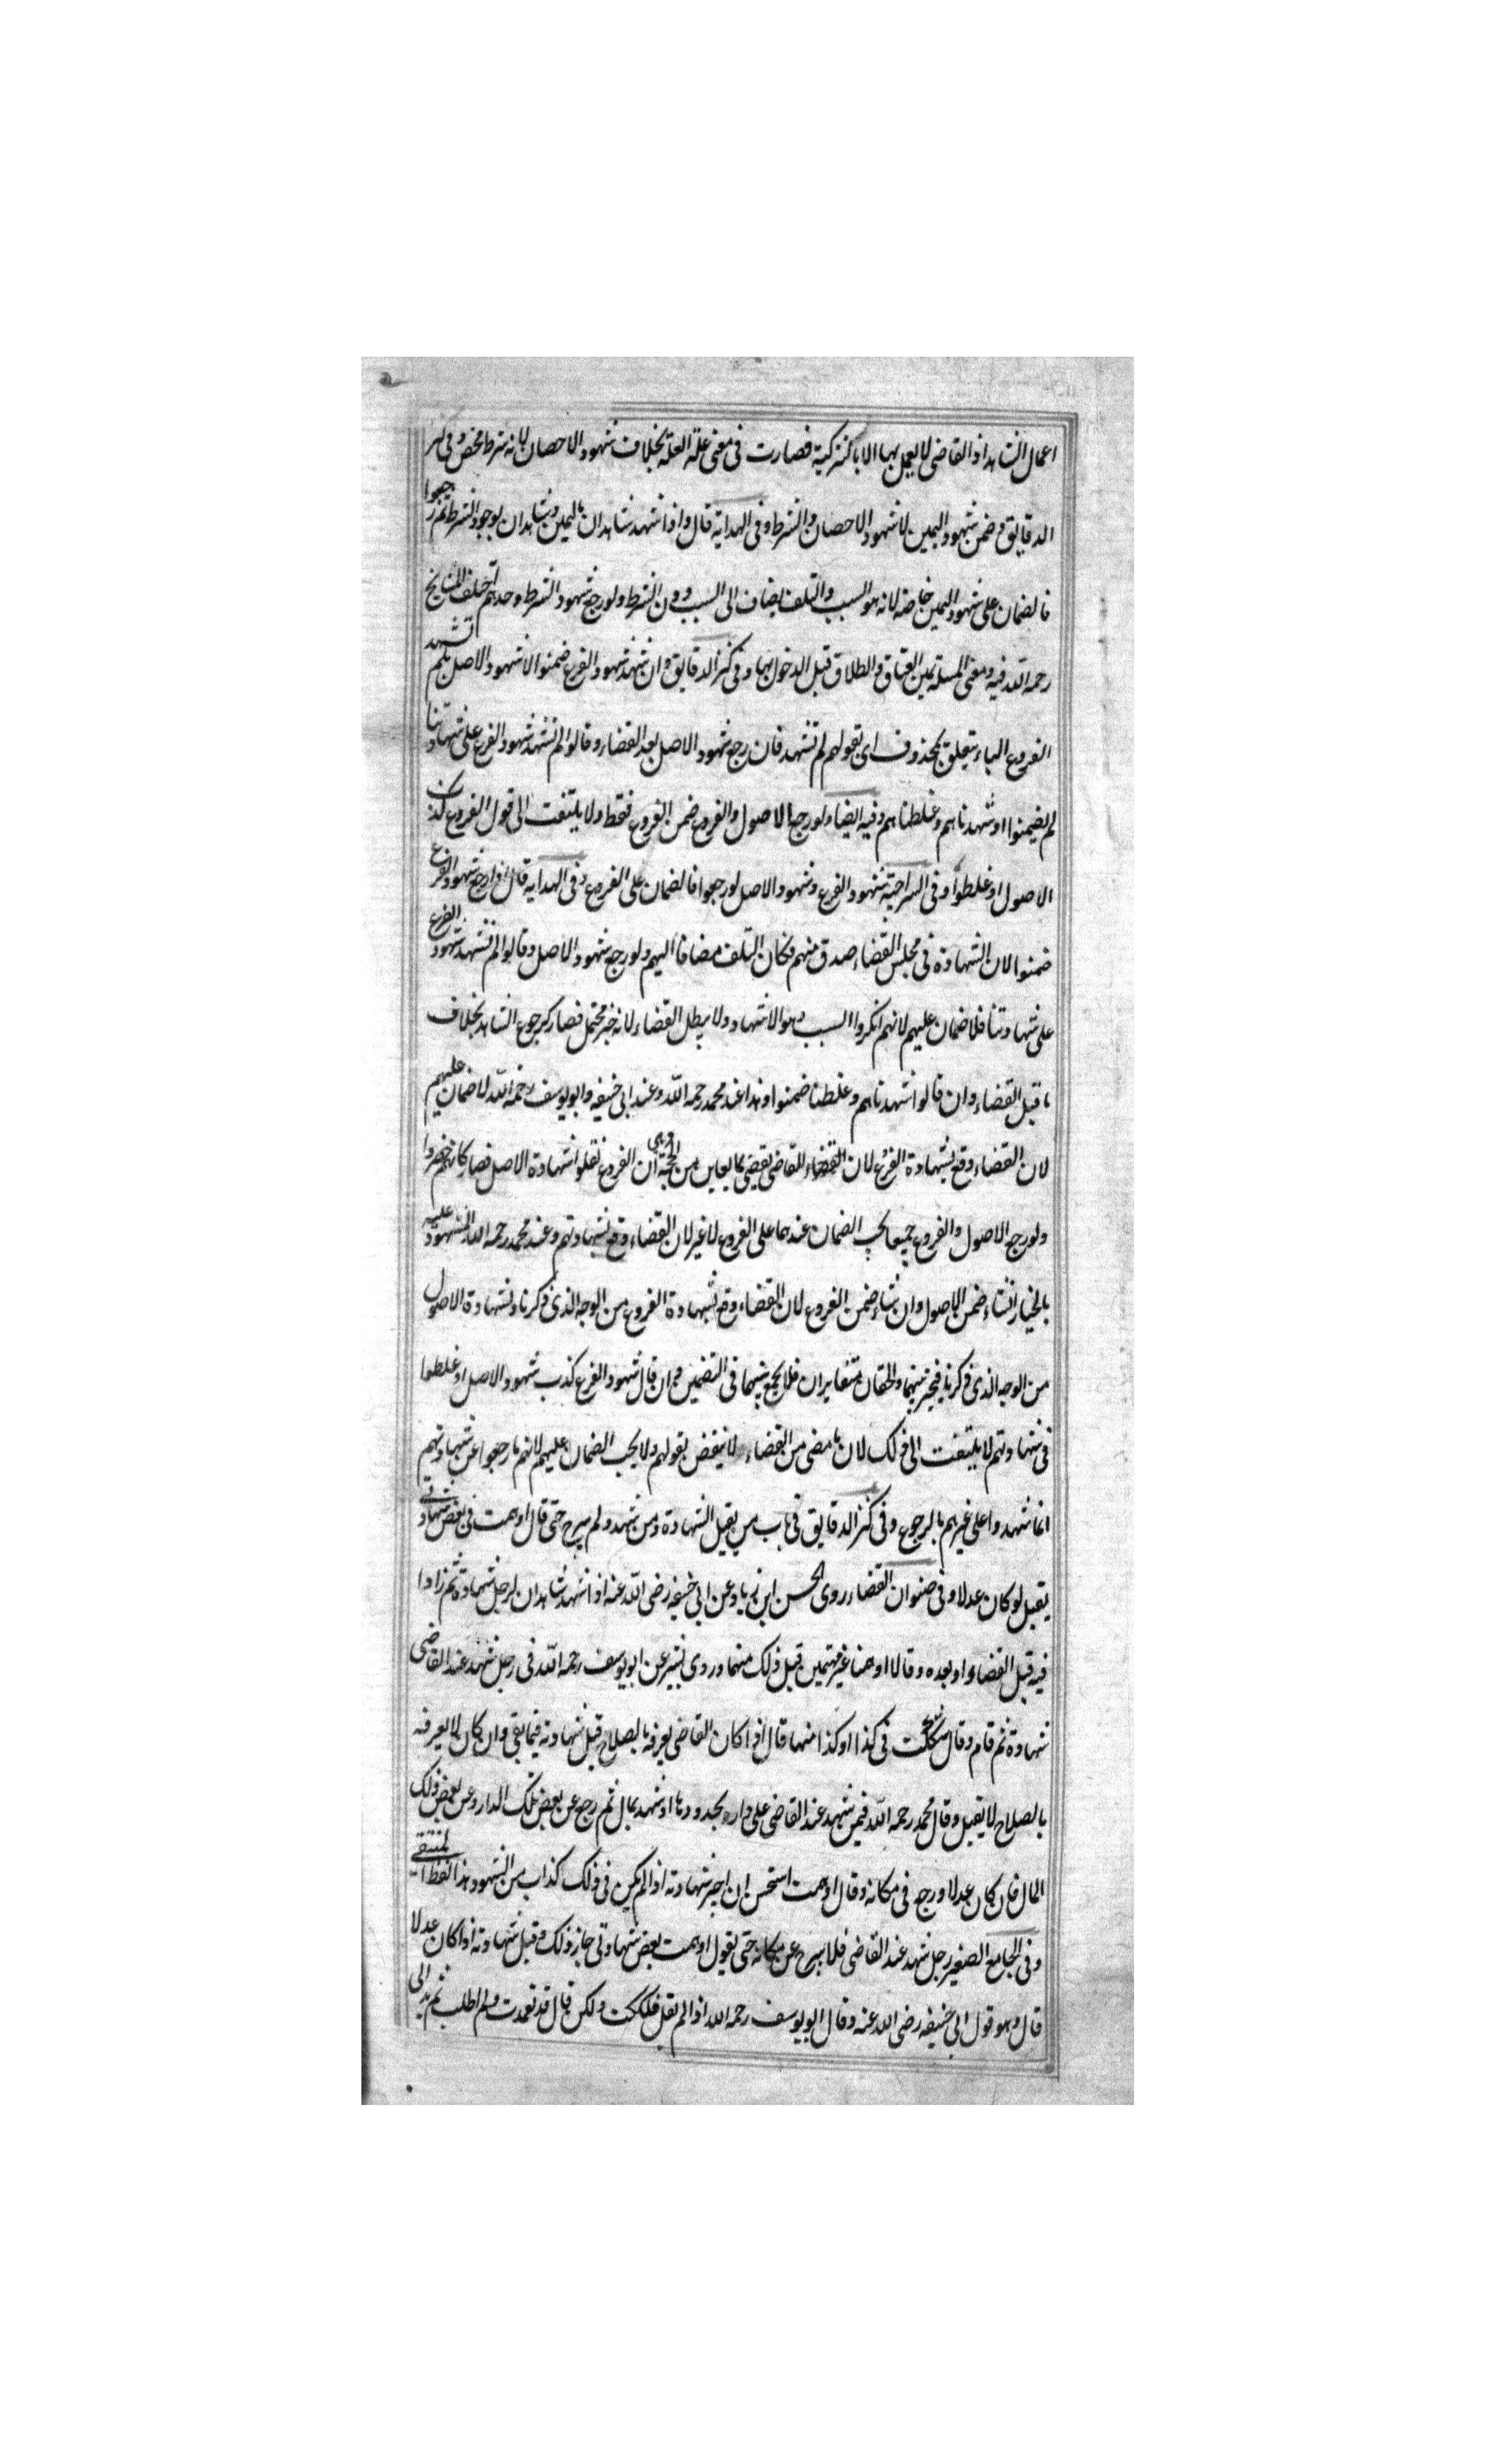 اعمال الشاهد اذ القاضى لا يعمل بها الا بالتزكية فصارت فى معنى علة العلة بخلاف شهود الاحصان لانه شرط محض وفى كنز
الدقايق وضمن شهود اليمين لا شهود الاحصان والشرط وفى الهداية قال واذا شهد شاهدان باليمين وشاهدان بوجود الشرط ثم رجعوا
فالضمان على شهود اليمين خاصة لانه هو السبب والتلف يضاف الى السبب دون الشرط ولو رجع شهود الشرط وحدهم اختلف المشايخ
رحمه الله فيه ومعنى المسئلة يمين العتاق والطلاق قبل الدخول بها وفى كنز الدقايق وان شهد شهود الفرع ضمنوا لا شهود الاصل بلم تشهد
الفروع الباء يتعلق بمحذوف اى بقولهم لم تشهد فان رجع شهود الاصل بعد القضاء وقالوا لم تشهد شهود الفرع على شهادتنا
لم يضمنوا او شهدناهم وغلطناهم وفيه ايضا ولو رجع الاصول والفروع ضمن الفروع فقط ولا يلتفت الى قول الفروع كذب
الاصول او غلطوا وفى السراجية شهود الفرع وشهود الاصل لو رجعوا فالضمان على الفروع وفى الهداية قال اذا رجع شهود الفرع
ضمنوا لان الشهادة فى مجلس القضاء صدق منهم فكان التلف مضافا اليهم ولو رجع شهود الاصل وقالوا لم تشهد شهود الفرع
على شهادتنا فلا ضمان عليهم لانهم انكروا السبب وهو الاشهاد ولا يبطل القضاء لانه خبر محتمل فصار كرجوع الشاهد بخلاف
ما قبل القضاء وان قالوا شهدناهم وغلطنا ضمنوا وهذا عند محمد رحمه الله وعند ابى حنيفه وابو يوسف رحمه الله لا ضمان عليهم
لان القضاء وقع بشهادة الفرع لان القضاء القاضى يقضى بما يعاين من الحجة وهى ان الفروع نقلوا شهادة الاصل فصار كانهم حضروا
ولو رجع الاصول والفروع جميعا يجب الضمان عندهما على الفروع لا غير لان القضاء وقع بشهادتهم وعند محمد رحمه الله المشهود عليه
بالخيار انشاء ضمن الاصول وان شاء ضمن الفروع لان القضاء وقع بشهادة الفروع من الوجه الذى ذكرنا وبشهادة الاصول
من الوجه الذى ذكرنا فيتخير بينهما والحقان متغايران فلا يجمع بينهما فى التضمين وان قال شهود الفرع كذب شهود الاصل او غلطوا
فى شهادتهم لا يلتفت الى ذلك لان ما مضى من القضاء لا ينقض بقولهم ولا يجب الضمان عليهم لانهم ما رجعوا عن شهادتهم
انما شهدوا على غيرهم بالرجوع وفى كنز الدقايق فى باب من يقبل الشهادة ومن شهد ولم يبرح حتى قال اوهمت فى بعض شهادتى
يقبل لو كان عدلا وفى صنوان القضاء روى الحسن ابن زياد عن ابى حنيفه رضى الله عنه اذا شهد شاهدان لرجل شهادة ثم زادا
فيه قبل القضاء او بعده وقالا اوهمنا غير متهمين قبل ذلك منهما وروى بشير عن ابو يوسف رحمه الله فى رجل شهد عند القاضى
شهادة ثم قام وقال شككت فى كذا او كذا منها قال اذا كان القاضى يعرفه بالصلاح قبل شهادته فيما بقى وان كان لا يعرفه
بالصلاح لا يقبل وقال محمد رحمه الله فيمن شهد عند القاضى على دار بحدودها او شهد بمال ثم رجع عن بعض تلك الدار وعن بعض ذلك
المال فان كان عدلا ورجع فى مكانه وقال اوهمت استحسن ان اجيز شهادته اذا لم يكن فى ذلك كذاب من الشهود هذا لفظ المنتقى
وفى الجامع الصغير رجل شهد عند القاضى فلا يبرح عن مكانه حتى يقول اوهمت بعض شهادتى جاز ذلك وقبل شهادته اذا كان عدلا
قال وهو قول ابى حنيفه رضى الله عنه وقال ابو يوسف رحمه الله اذا لم يقل شككت ولكن قال قد تعمدت ولم اطلب ثم بدا لى